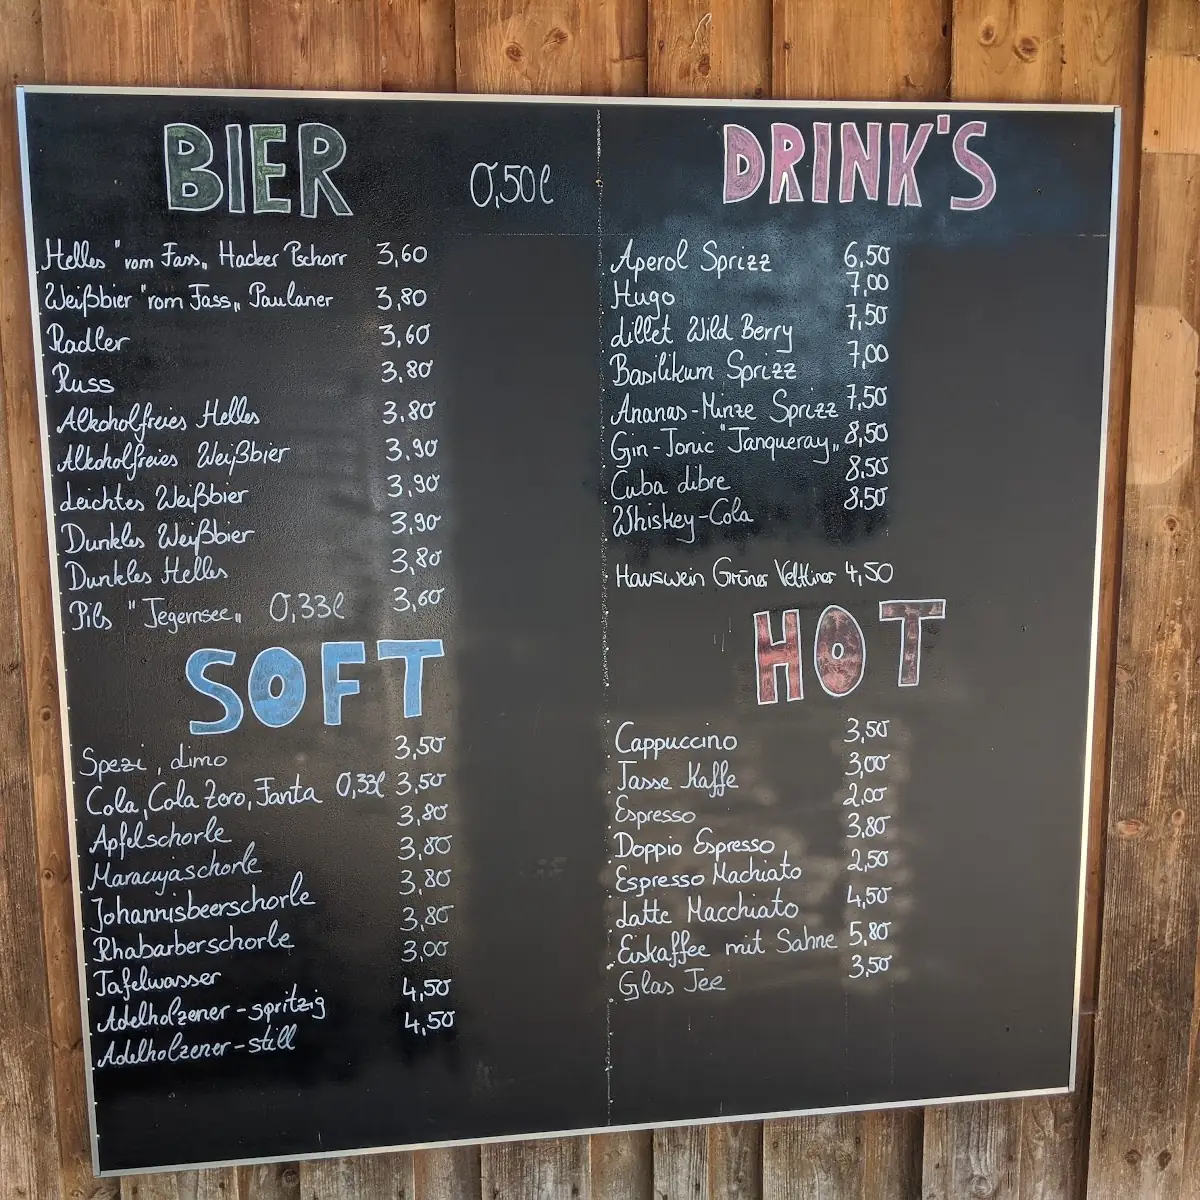 BIER 0,50l
Helles "vom Fass" Hacker Pschorr 3,60
Weißbier "vom Fass" Paulaner 3,80
Radler 3,60
Russ 3,80
Alkoholfreies Helles 3,80
Alkoholfreies Weißbier 3,90
Leichtes Weißbier 3,90
Dunkles Weißbier 3,90
Dunkles Helles 3,80
Pils "Tegernsee" 0,33l 3,60
SOFT
Spezi, Limo 3,50
Cola, Cola Zero, Fanta 0,33l 3,50
Apfelschorle 3,80
Maracujaschorle 3,80
Johannisbeerschorle 3,80
Rhabarberschorle 3,80
Tafelwasser 3,00
Adelholzener-spritzig 4,50
Adelholzener-still 4,50
DRINK'S
Aperol Sprizz 6,50
Hugo 7,00
Lillet Wild Berry 7,50
Basilikum Sprizz 7,00
Ananas-Minze Sprizz 7,50
Gin-Tonic "Tanqueray" 8,50
Cuba Libre 8,50
Whiskey-Cola 8,50
Hauswein Grüner Veltliner 4,50
HOT
Cappuccino 3,50
Tasse Kaffe 3,00
Espresso 2,00
Doppio Espresso 3,80
Espresso Machiato 2,50
Latte Macchiato 4,50
Eiskaffee mit Sahne 5,80
Glas Tee 3,50